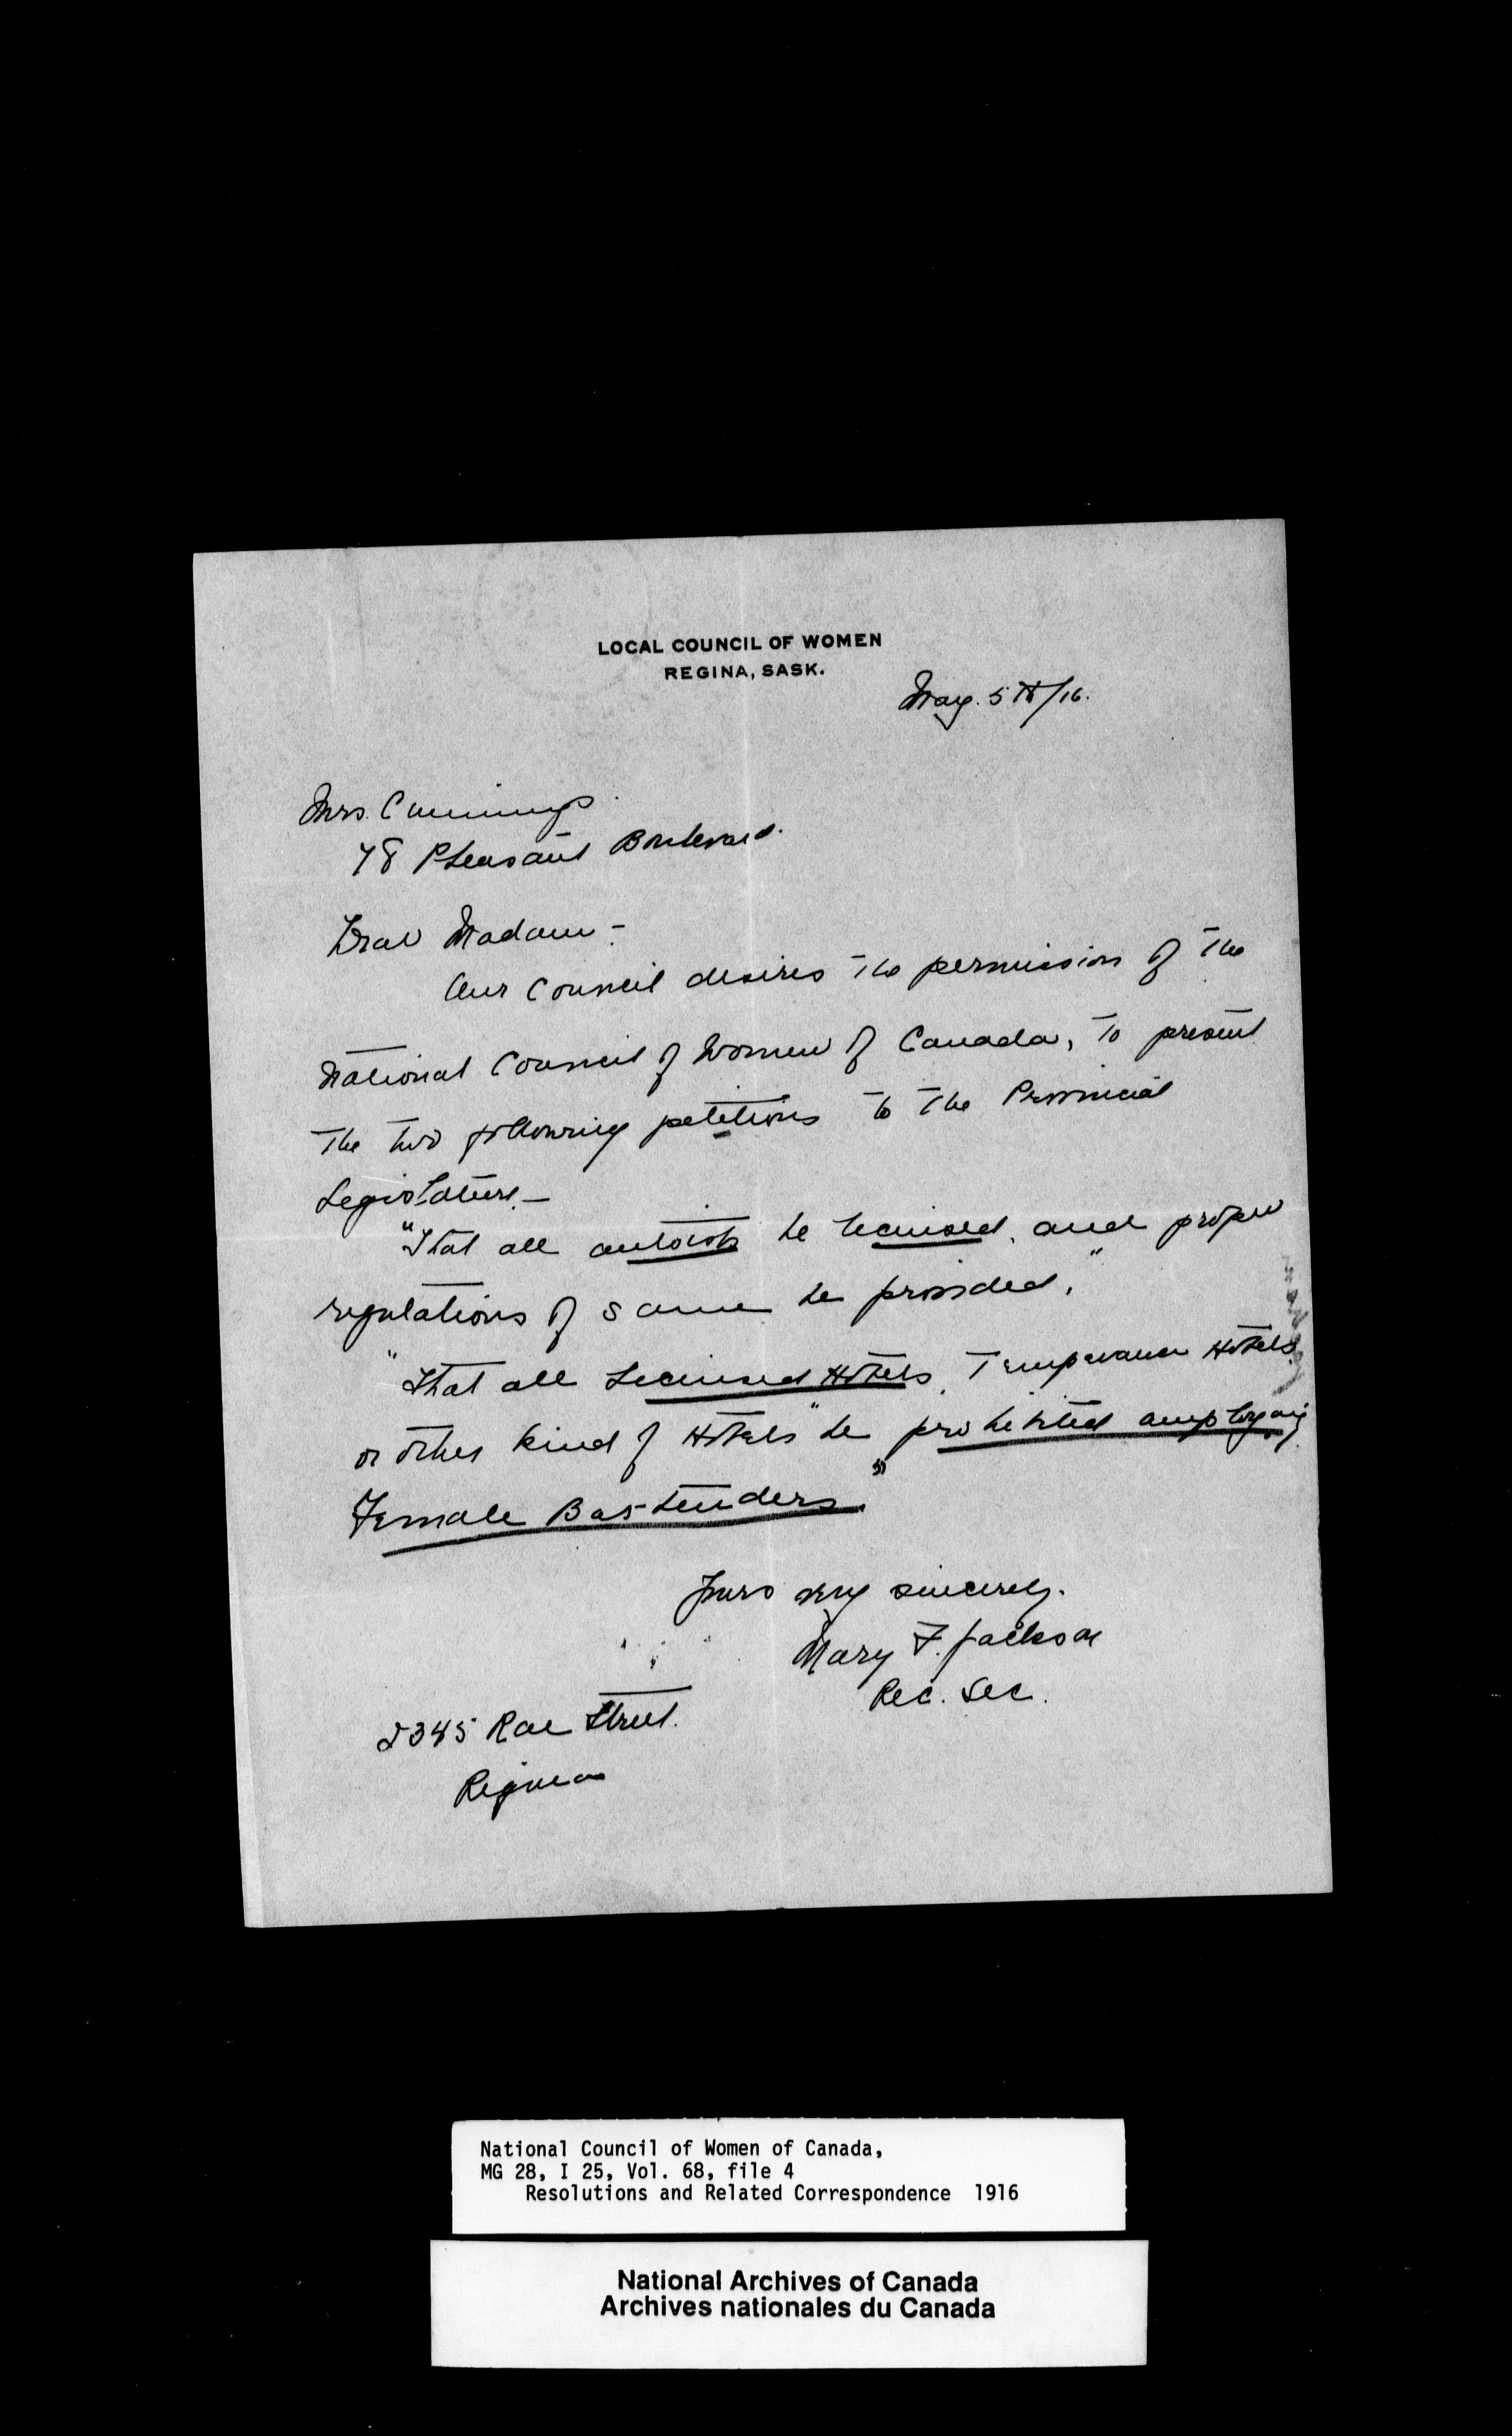 LOCAL COUNCIL OF WOMEN
REGINA, SASK.
May. 5th/16.
Mrs. Cummings
78 Pleasant Boulevard.
Dear Madam-
Our Council desires the permission of the
National Council of Women of Canada, to present
the two following petitions to the Provincial
Legislature.-
"That all autoists be licensed, and proper
regulations of same be provided."
"That all Licensed Hotels, Temperance Hotels
or other kind of Hotels" be prohibited employing
Female Bar-tenders."
Yours very sincerely.
Mary F. Jackson
Rec. Sec.
2345 Rae Street.
Regina
National Council of Women of Canada,
MG 28, I 25, Vol. 68, file 4
Resolutions and Related Correspondence 1916
National Archives of Canada
Archives nationales du Canada